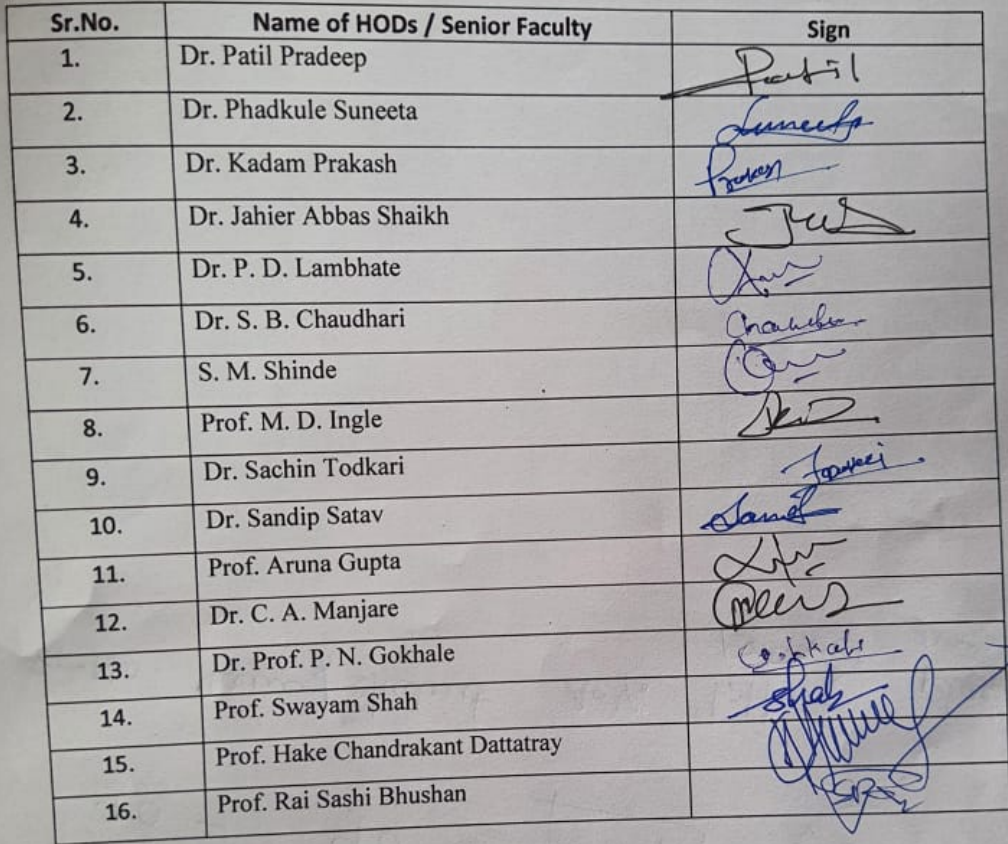 Sr.No. Name of HODs / Senior Faculty Sign
1. Dr. Patil Pradeep Patil
2. Dr. Phadkule Suneeta Suneeta
3. Dr. Kadam Prakash
4. Dr. Jahier Abbas Shaikh
5. Dr. P. D. Lambhate
6. Dr. S. B. Chaudhari
7. S. M. Shinde
8. Prof. M. D. Ingle
9. Dr. Sachin Todkari
10. Dr. Sandip Satav
11. Prof. Aruna Gupta
12. Dr. C. A. Manjare
13. Dr. Prof. P. N. Gokhale
14. Prof. Swayam Shah Shah
15. Prof. Hake Chandrakant Dattatray
16. Prof. Rai Sashi Bhushan